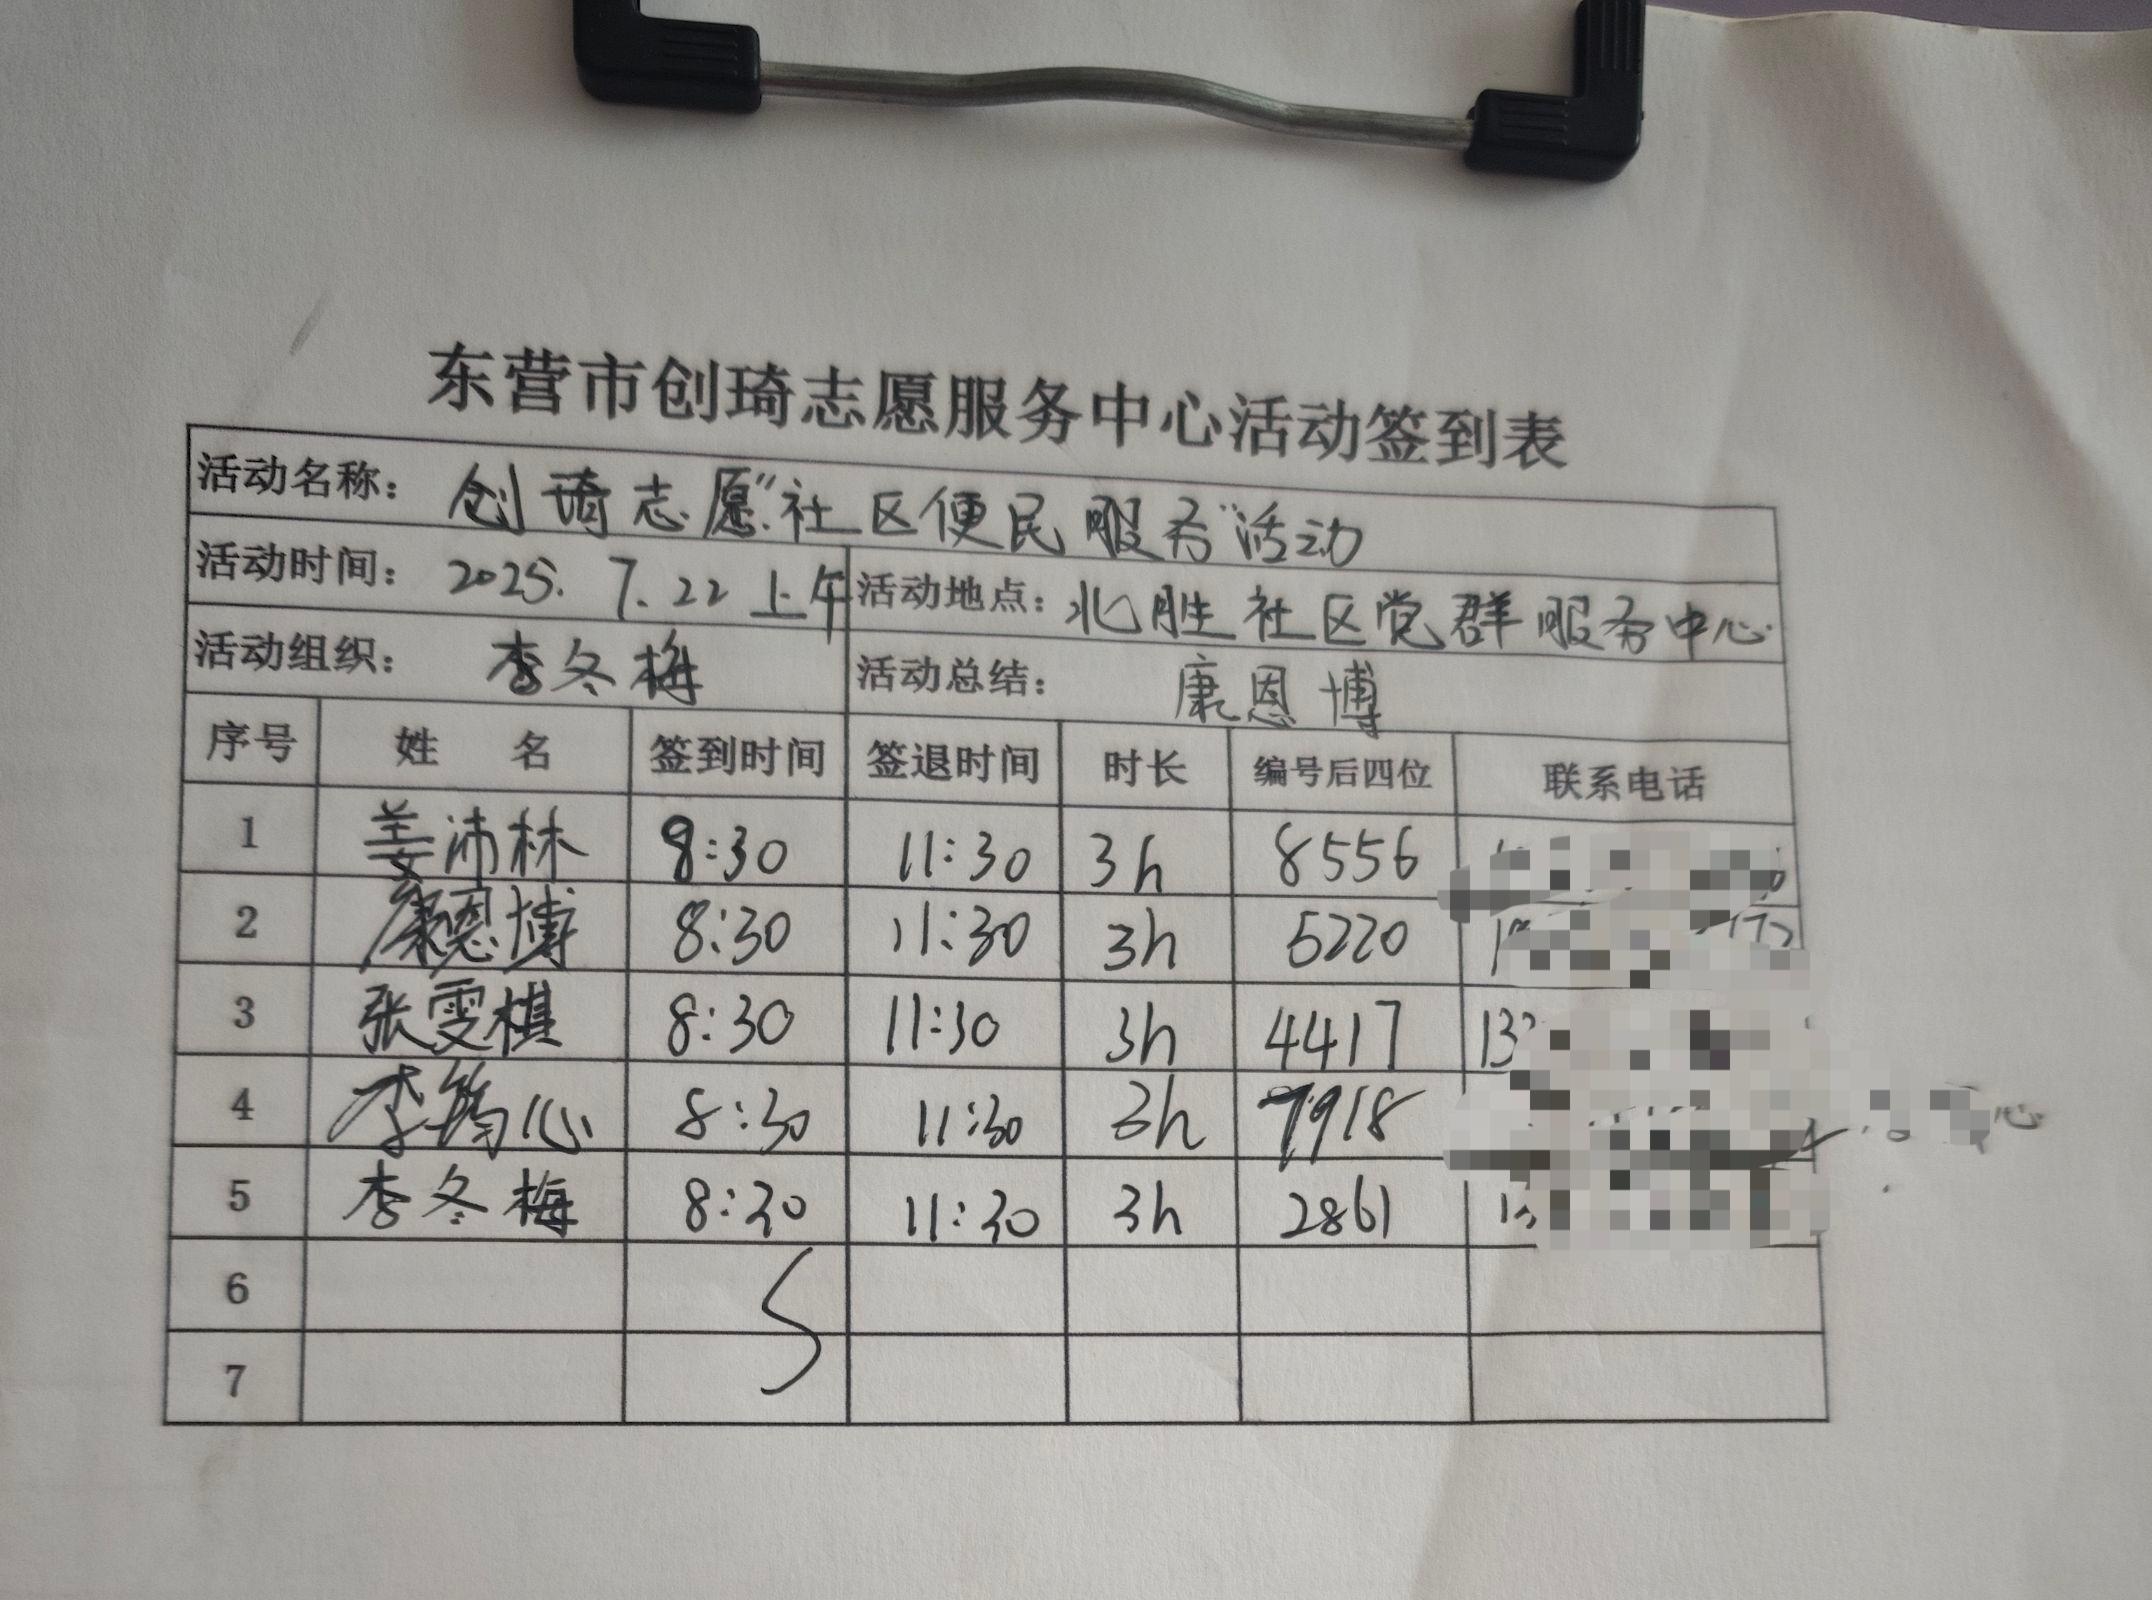 东营市创琦志愿服务中心活动签到表
活动名称： 创琦志愿“社区便民服务”活动
活动时间： 2025.7.22 上午 活动地点： 北胜社区党群服务中心
活动组织： 李冬梅 活动总结： 康恩博
序号 姓 名 签到时间 签退时间 时长 编号后四位 联系电话
1 姜沛林 8:30 11:30 3h 8556
2 康恩博 8:30 11:30 3h 5220
3 张雯棋 8:30 11:30 3h 4417 13
4 李筠心 8:30 11:30 3h 7918
5 李冬梅 8:30 11:30 3h 2861
6
7